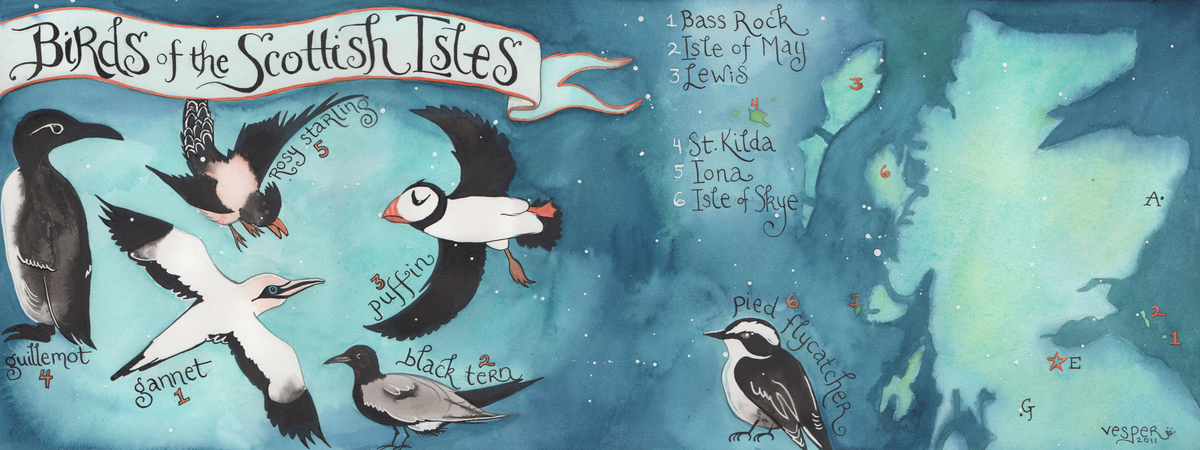 Birds of the Scottish Isles
rosy starling
5
guillemot
4
gannet
1
3
puffin
2
black tern
pied flycatcher
6
1 Bass Rock
2 Isle of May
3 Lewis
4 St. Kilda
5 Iona
6 Isle of Skye
3
4
6
A
5
2
1
E
G
vesper
2011